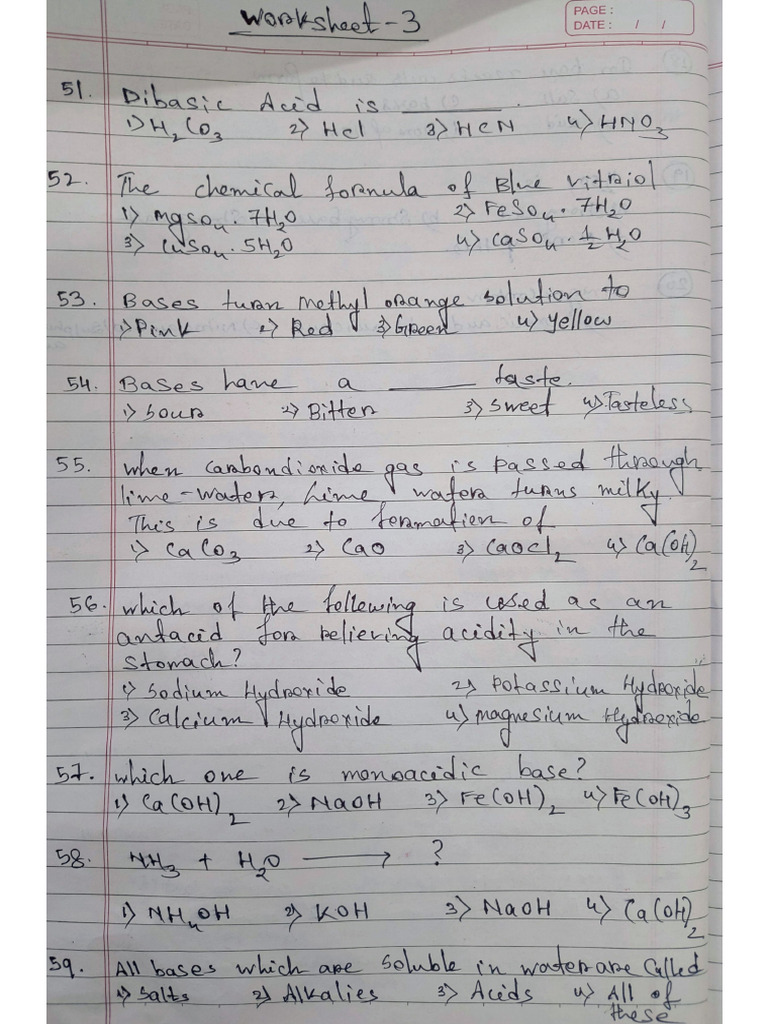 Worksheet-3
PAGE :
DATE : / /
51. Dibasic Acid is ________.
1) H₂CO₃ 2) HCl 3) HCN 4) HNO₃
52. The chemical formula of Blue vitriol
1) MgSO₄·7H₂O 2) FeSO₄·7H₂O
3) CuSO₄·5H₂O 4) CaSO₄·½H₂O
53. Bases turn methyl orange solution to
1) Pink 2) Red 3) Green 4) Yellow
54. Bases have a ________ taste.
1) Sour 2) Bitter 3) Sweet 4) Tasteless
55. When Carbondioxide gas is passed through
lime-water, Lime water turns milky.
This is due to formation of
1) CaCO₃ 2) CaO 3) CaOCl₂ 4) Ca(OH)₂
56. which of the following is used as an
antacid for relieving acidity in the
stomach?
1) Sodium Hydroxide 2) Potassium Hydroxide
3) Calcium Hydroxide 4) Magnesium Hydroxide
57. which one is monoacidic base?
1) Ca(OH)₂ 2) NaOH 3) Fe(OH)₂ 4) Fe(OH)₃
58. NH₃ + H₂O ⟶ ?
1) NH₄OH 2) KOH 3) NaOH 4) Ca(OH)₂
59. All bases which are soluble in water are Called
1) Salts 2) Alkalies 3) Acids 4) All of
these